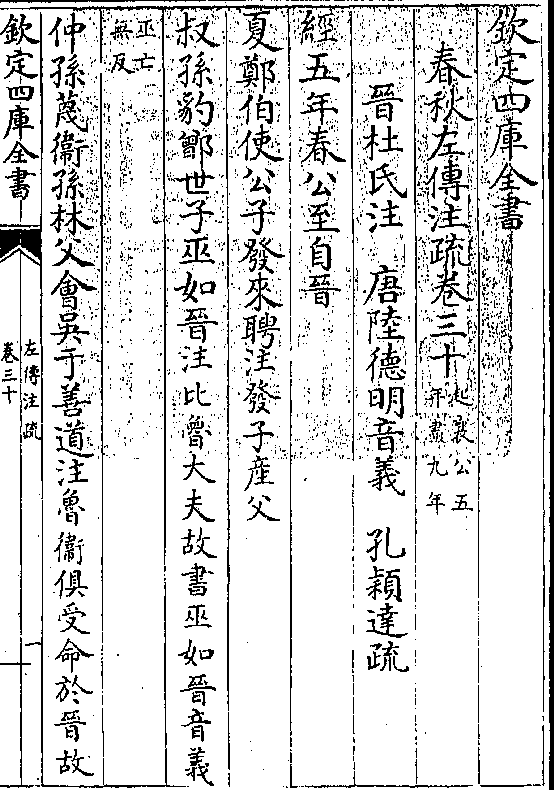 欽定四庫全書
春秋左傳注疏卷三十起襄公五年盡九年
晉杜氏注 唐陸德明音義 孔穎達疏
經五年春公至自晉
夏鄭伯使公子發來聘注發子產父
叔孫豹鄫世子巫如晉注比魯大夫故書巫如晉音義
巫亡無反
仲孫蔑衛孫林父會吳于善道注魯衛俱受命於晉故
欽定四庫全書
左傳注疏
卷三十
一